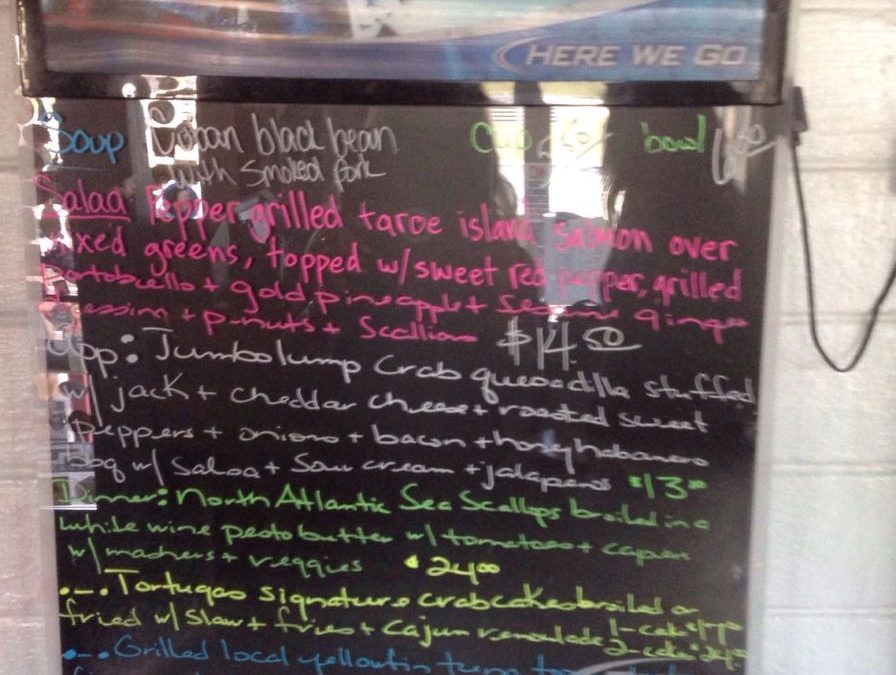 HERE WE GO
Soup Cuban black bean cup 4 50 bowl 6 50
with smoked pork
Salad Pepper grilled taroe island salmon over
mixed greens, topped w/ sweet red pepper, grilled
portobello + gold pineapple + sesame ginger
dressing + p-nuts + scallions $14.50
App: Jumbo lump crab quesadilla stuffed
w/ jack + cheddar cheese + roasted sweet
peppers + onions + bacon + honey habanero
bbq w/ salsa + sour cream + jalapenos $13 00
Dinner: North Atlantic Sea Scallops broiled in a
white wine pesto butter w/ tomatoes + capers
w/ mashers + veggies $24 00
•-. Tortugas signature crabcakes broiled or
fried w/ slaw + fries + cajun remoulade 1-cake
2-cake
•-. Grilled local yellowfin tuna